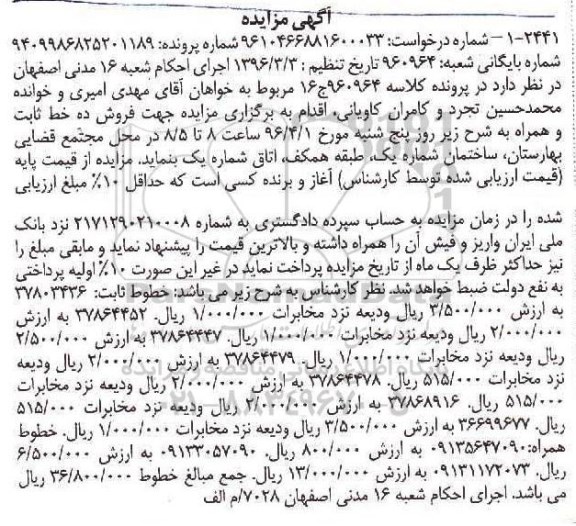 آگهی مزایده
۱-۲۴۴۱ – شماره درخواست: ۹۶۱۰۴۶۶۸۸۱۶۰۰۰۳۳ شماره پرونده: ۹۴۰۹۹۸۶۸۲۵۲۰۱۱۸۹
شماره بایگانی شعبه: ۹۶۰۹۶۴ تاریخ تنظیم : ۱۳۹۶/۳/۳ اجرای احکام شعبه ۱۶ مدنی اصفهان
در نظر دارد در پرونده کلاسه ۹۶۰۹۶۴ج۱۶ مربوط به خواهان آقای مهدی امیری و خوانده
محمدحسین تجرد و کامران کاویانی، اقدام به برگزاری مزایده جهت فروش ده خط ثابت
و همراه به شرح زیر روز پنج شنبه مورخ ۹۶/۴/۱ ساعت ۸ تا ۸/۵ در محل مجتمع قضایی
بهارستان، ساختمان شماره یک، طبقه همکف، اتاق شماره یک بنماید. مزایده از قیمت پایه
(قیمت ارزیابی شده توسط کارشناس) آغاز و برنده کسی است که حداقل ۱۰٪ مبلغ ارزیابی
شده را در زمان مزایده به حساب سپرده دادگستری به شماره ۲۱۷۱۲۹۰۲۱۰۰۰۸ نزد بانک
ملی ایران واریز و فیش آن را همراه داشته و بالاترین قیمت را پیشنهاد نماید و مابقی مبلغ را
نیز حداکثر ظرف یک ماه از تاریخ مزایده پرداخت نماید در غیر این صورت ۱۰٪ اولیه پرداختی
به نفع دولت ضبط خواهد شد. نظر کارشناس به شرح زیر می باشد: خطوط ثابت: ۳۷۸۰۳۴۳۶
به ارزش ۳/۵۰۰/۰۰۰ ریال ودیعه نزد مخابرات ۱/۰۰۰/۰۰۰ ریال. ۳۷۸۶۴۴۵۲ به ارزش
۲/۰۰۰/۰۰۰ ریال ودیعه نزد مخابرات ۱/۰۰۰/۰۰۰ ریال. ۳۷۸۶۴۴۴۷ به ارزش ۲/۵۰۰/۰۰۰
ریال ودیعه نزد مخابرات ۱/۰۰۰/۰۰۰ ریال. ۳۷۸۶۴۴۷۹ به ارزش ۲/۰۰۰/۰۰۰ ریال ودیعه
نزد مخابرات ۵۱۵/۰۰۰ ریال. ۳۷۸۶۴۴۷۸ به ارزش ۲/۰۰۰/۰۰۰ ریال ودیعه نزد مخابرات
۵۱۵/۰۰۰ ریال. ۳۷۸۶۸۹۱۶ به ارزش ۲/۰۰۰/۰۰۰ ریال ودیعه نزد مخابرات ۵۱۵/۰۰۰
ریال. ۳۶۶۹۹۶۷۷ به ارزش ۳/۵۰۰/۰۰۰ ریال ودیعه نزد مخابرات ۱/۰۰۰/۰۰۰ ریال. خطوط
همراه: ۰۹۱۳۵۶۴۷۰۹۰ به ارزش ۸۰۰/۰۰۰ ریال. ۰۹۱۳۳۰۵۷۰۹۰ به ارزش ۶/۵۰۰/۰۰۰
ریال. ۰۹۱۳۱۱۷۲۰۷۳ به ارزش ۱۳/۰۰۰/۰۰۰ ریال. جمع مبالغ خطوط ۳۶/۸۰۰/۰۰۰ ریال
می باشد. اجرای احکام شعبه ۱۶ مدنی اصفهان ۷۰۲۸/م الف